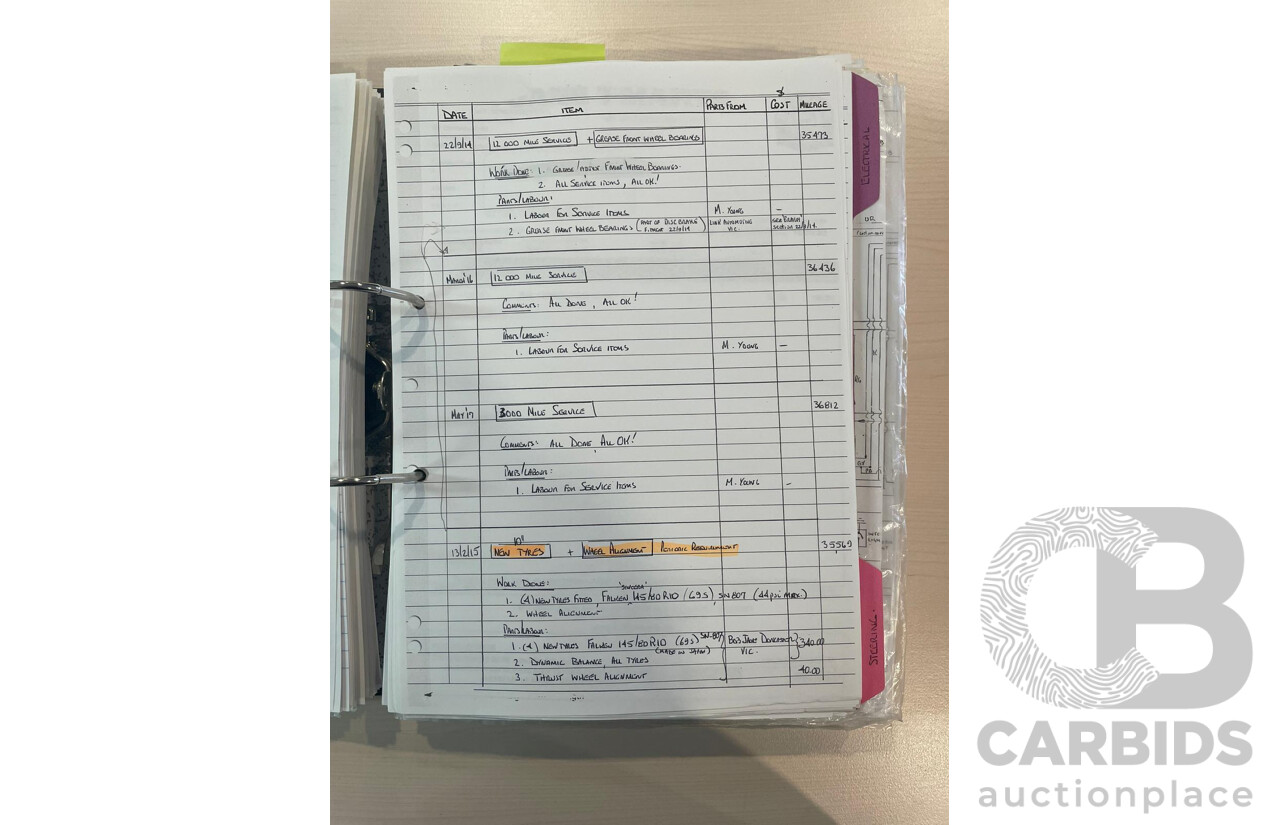 $
DATE ITEM PARTS FROM COST MILEAGE
22/9/14 12 000 MILE SERVICE + GREASE FRONT WHEEL BEARINGS 35473
WORK DONE: 1. GREASE/ FRONT WHEEL BEARINGS.
2. ALL SERVICE ITEMS, ALL OK!
PARTS/LABOUR:
1. LABOUR FOR SERVICE ITEMS M. YOUNG –
2. GREASE FRONT WHEEL BEARINGS (PART OF DISC BRAKE 22/9/14) AUTOMOTIVE VIC. SEE "BRAKES" SECTION 22/9/14.
MARCH '16 12 000 MILE SERVICE 36436
COMMENTS: ALL DONE, ALL OK!
PARTS/LABOUR:
1. LABOUR FOR SERVICE ITEMS M. YOUNG –
MAY '17 3000 MILE SERVICE 36812
COMMENTS: ALL DONE, ALL OK!
PARTS/LABOUR:
1. LABOUR FOR SERVICE ITEMS M. YOUNG –
10"
13/2/15 NEW TYRES + WHEEL ALIGNMENT PERIODIC REQUIREMENT 35569
WORK DONE:
1. (4) NEW TYRES FITTED, FALKEN 145/80 R10 (69S), SN807 (44psi MAX.)
2. WHEEL ALIGNMENT
PARTS/LABOUR:
1. (4) NEW TYRES FALKEN 145/80R10 (69S) SN-807 (MADE IN JAPAN) BOB JANE DONCASTER VIC. 340.00
2. DYNAMIC BALANCE, ALL TYRES
3. THRUST WHEEL ALIGNMENT 40.00
ELECTRICAL
OR
STEERING.
CB
CARBIDS
auctionplace